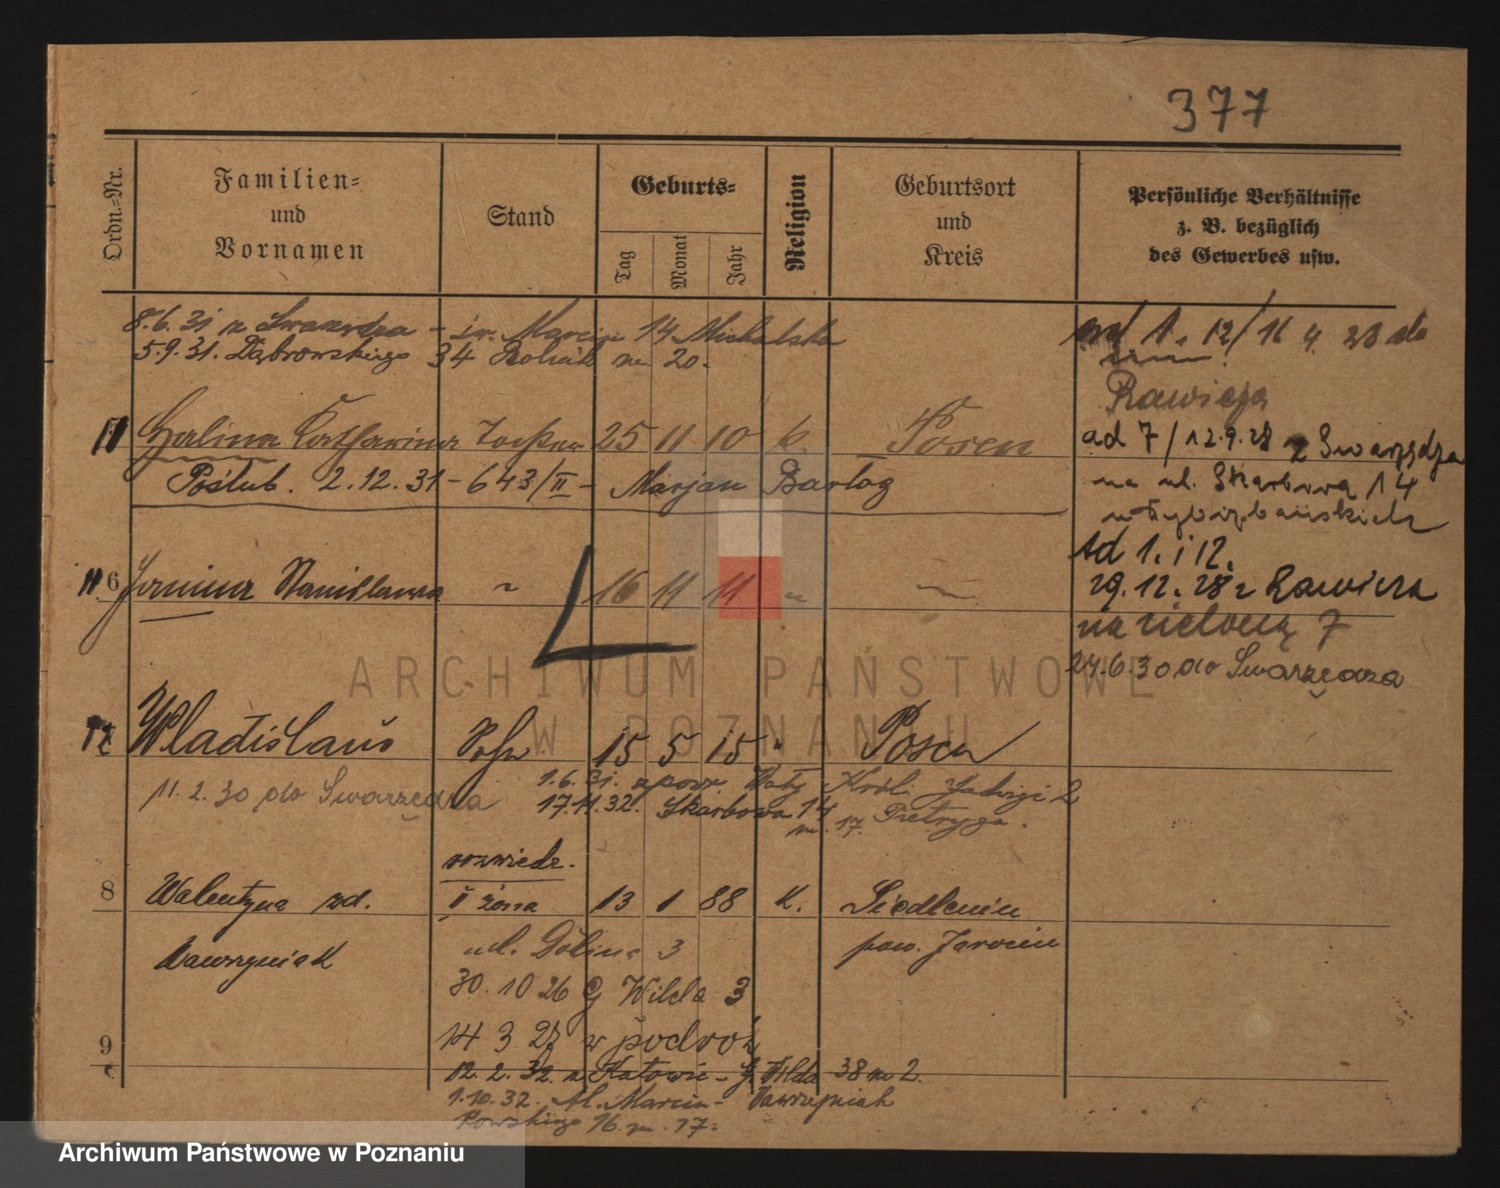 377
Ordn.-Nr.
Familien-
und
Vornamen
Stand
Geburts-
Tag
Monat
Jahr
Religion
Geburtsort
und
Kreis
Persönliche Verhältnisse
z. B. bezüglich
des Gewerbes usw.
8.6.31 z Swarzędza - św. Marcin 14 Michalska
5.9.31. Dąbrowskiego 34 m 20.
od 1. 12/11 4 28 do
Rawicza
Halina Catharina Tochter 25 11 10 k. Posen
ad 7/12.9.28 z Swarzędza
Poślub. 2.12.31 - 643/II - Marjan Bartog
na ul. Skarbową 14
6 Janina Stanislawa 16 11 11
ad 1. i 12.
29.12.28 z Rawicza
na zieloną 7
24.6.30 do Swarzędza
Wladislaus Sohn 15 5 15 " Posen
11.2.30 do Swarzędza
1.6.31. Król. Jadwigi 2
17.11.32. Skarbowa 14
m. 17. Pietryga.
rozwiedz.
8 Walentyna zd. II żona 13 1 88 K. Siedlemin
Wawrzyniak ul. Dolina 3 pow. Jarocin
30.10 26 G Wilda 3
14 3 27 w podróż
9
12.2.32. z Katowic - G. Wilda 38 m 2.
1.10.32. Al. Marcin- Wawrzyniak
kowskiego 16. m. 17.
ARCHIWUM PAŃSTWOWE
W POZNANIU
Archiwum Państwowe w Poznaniu